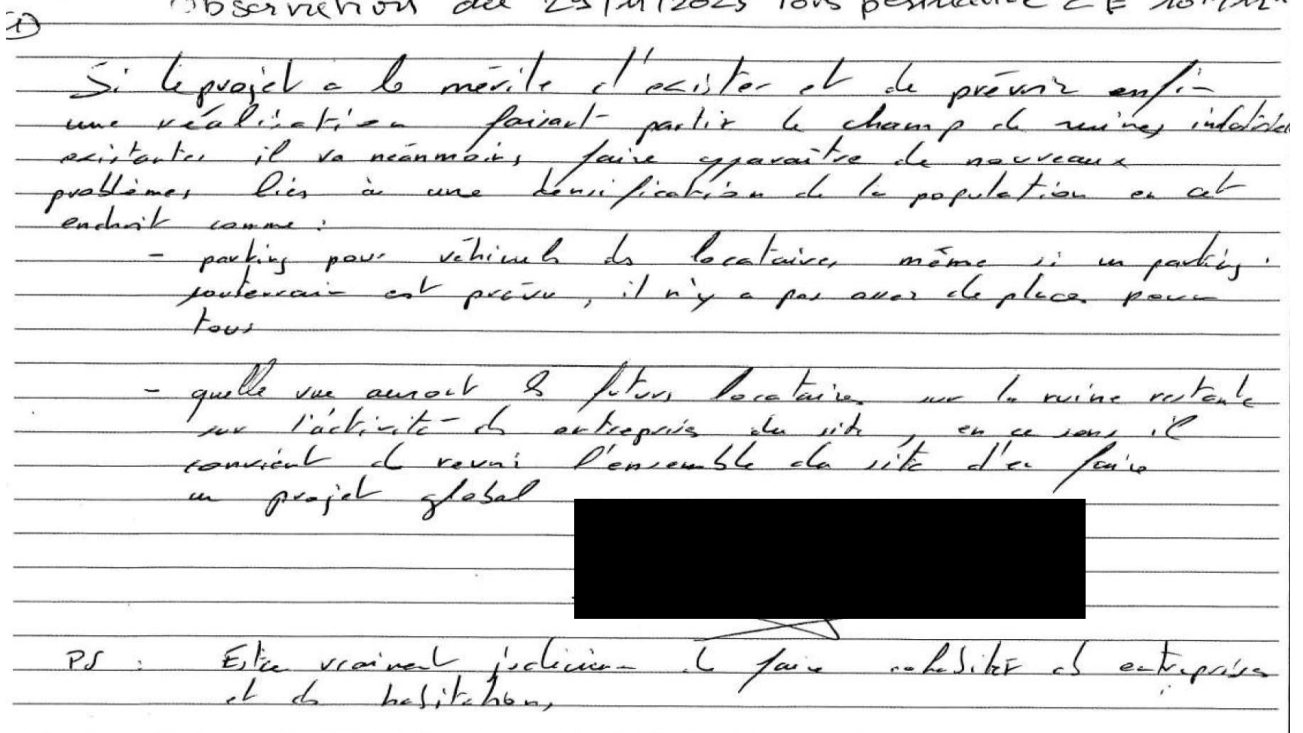 Observation du 29/11/2023 lors permanence CE 10h-12h
1)
Si le projet a le mérite d'exister et de prévoir enfin
une réalisation faisant partir le champ de ruines industrielles
existantes il va néanmoins faire apparaître de nouveaux
problèmes liés à une densification de la population en cet
endroit comme :
- parking pour véhicules des locataires même si un parking
souterrain est prévu, il n'y a pas assez de places pour
tous
- quelle vue auront les futurs locataires sur la ruine restante
sur l'activité des entreprises du site, en ce sens il
convient de revoir l'ensemble du site d'en faire
un projet global
PS : Est ce vraiment judicieux de faire cohabiter des entreprises
et des habitations,